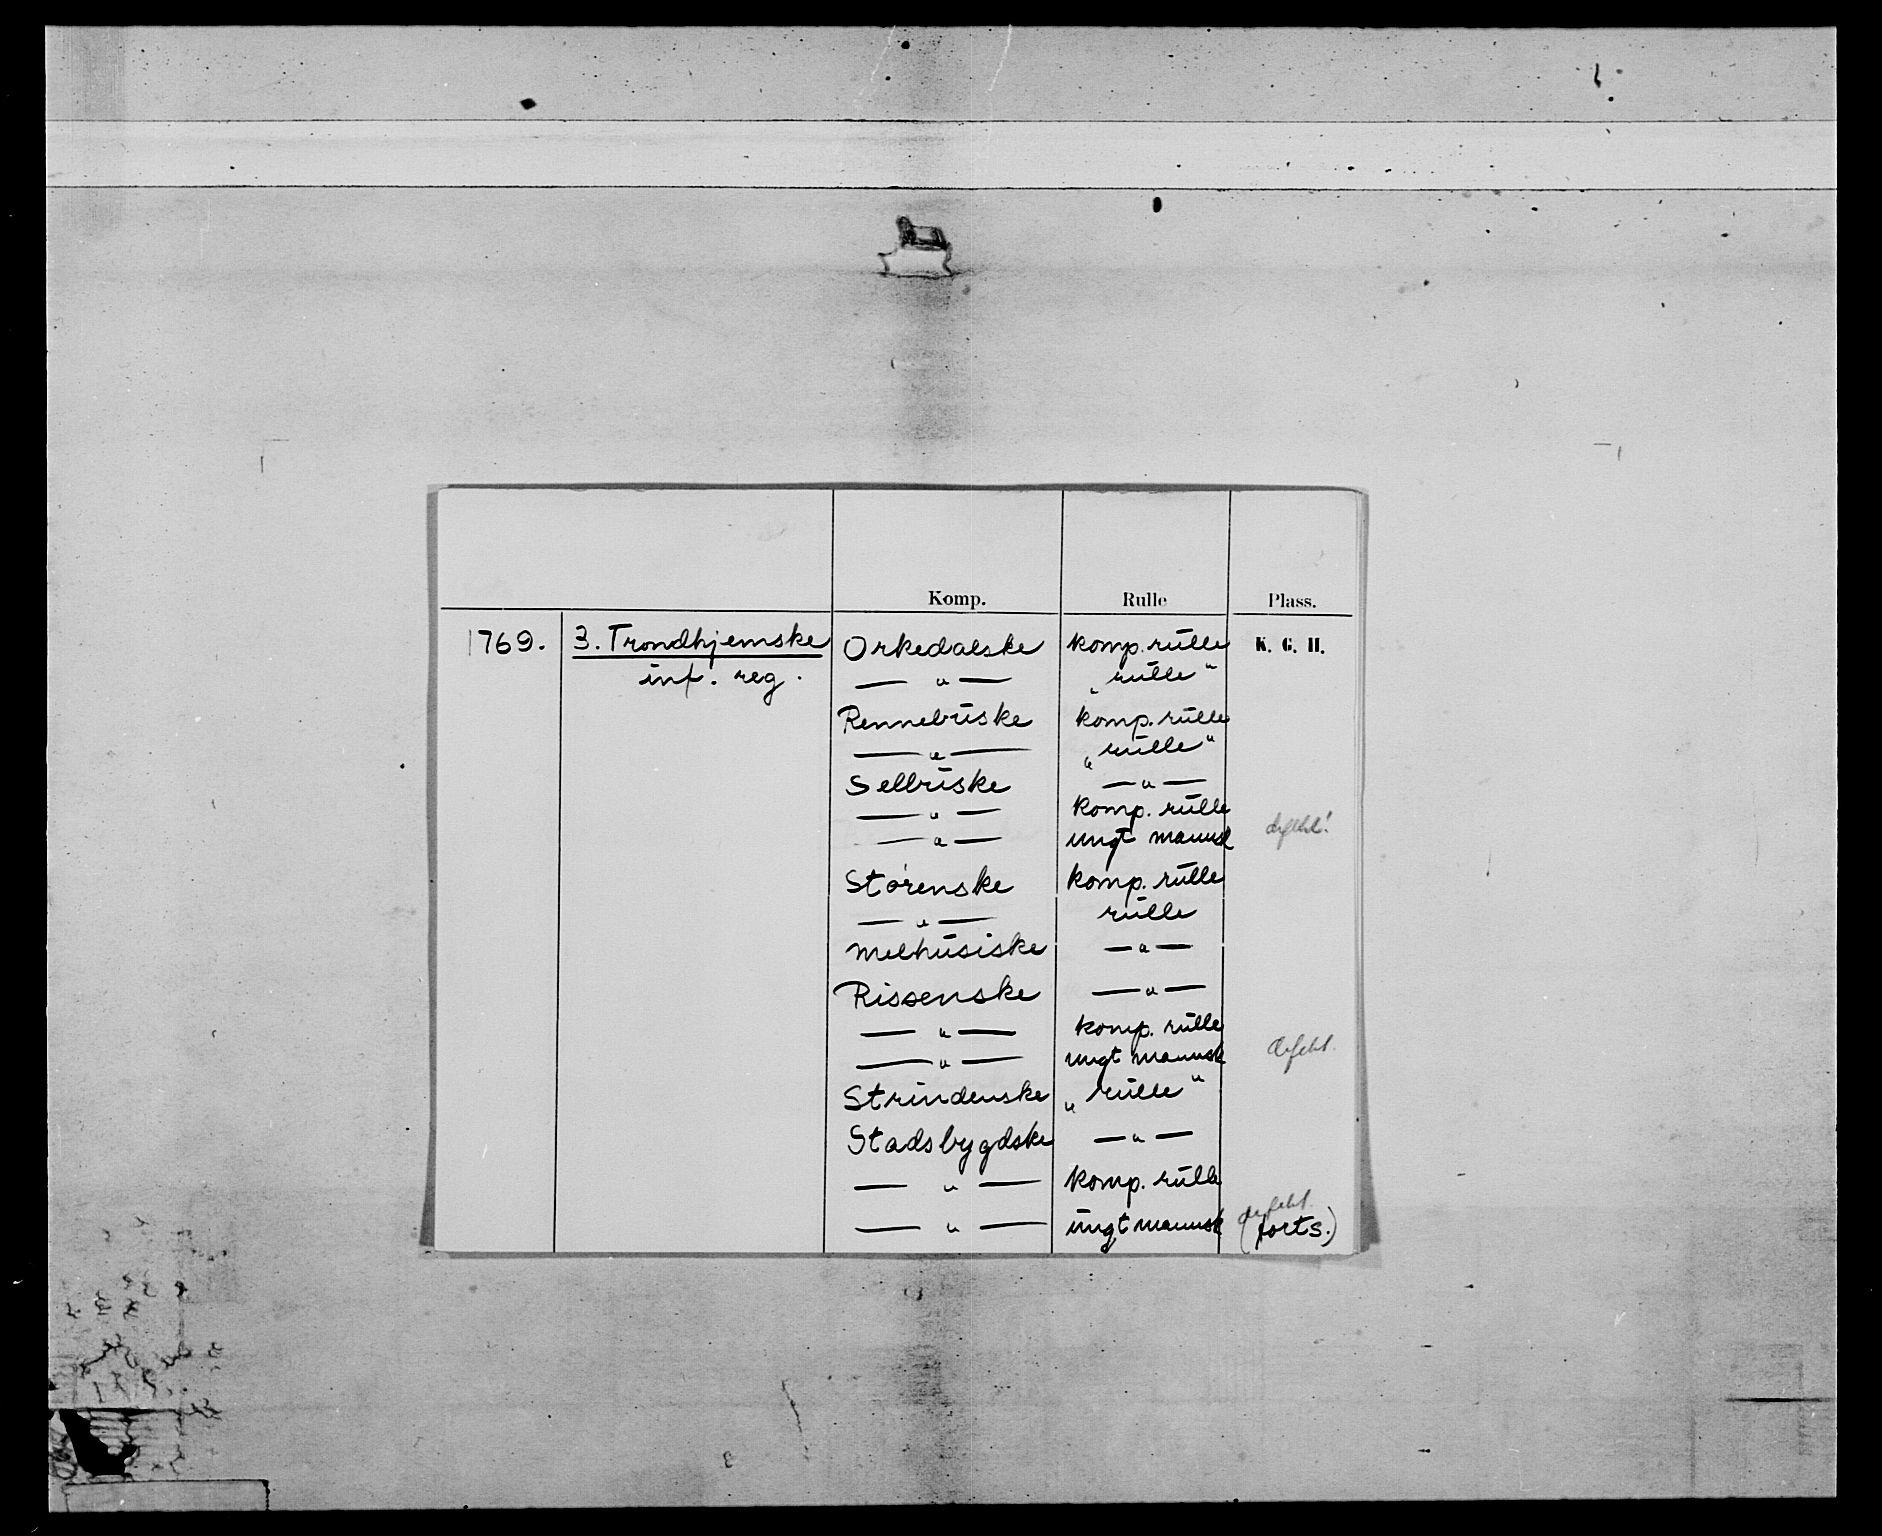 Komp. Rulle Plass.
1769. 3. Trondhjemske Orkedalske komp. rulle K. G. H.
inf. reg. — " — „ rulle "
Rennebuske komp. rulle
— " — „ rulle "
Selbuske — " —
— " — komp. rulle
— " — ungt mannsk defekt!
Størenske komp. rulle
— " — rulle
Melhusiske — " —
Rissenske — " —
— " — komp. rulle
— " — ungt mannsk defekt.
Strindenske „ rulle "
Stadsbygdske — " —
— " — komp. rulle
— " — ungt mannsk defekt.
(forts.)